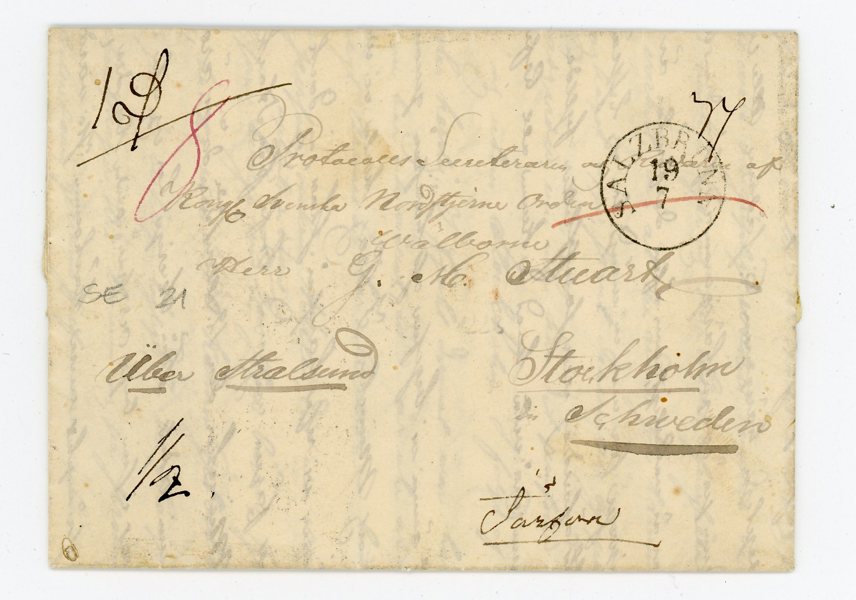 8
77
SALZBRUNN
19
7
Protocolls Secreteraren och Riddaren af
Kongl Svenska Nordstjerne Orden
Wälborne
Herr G. M. Stuart
SE 21
Über Stralsund
Stockholm
in
Schweden
1/2.